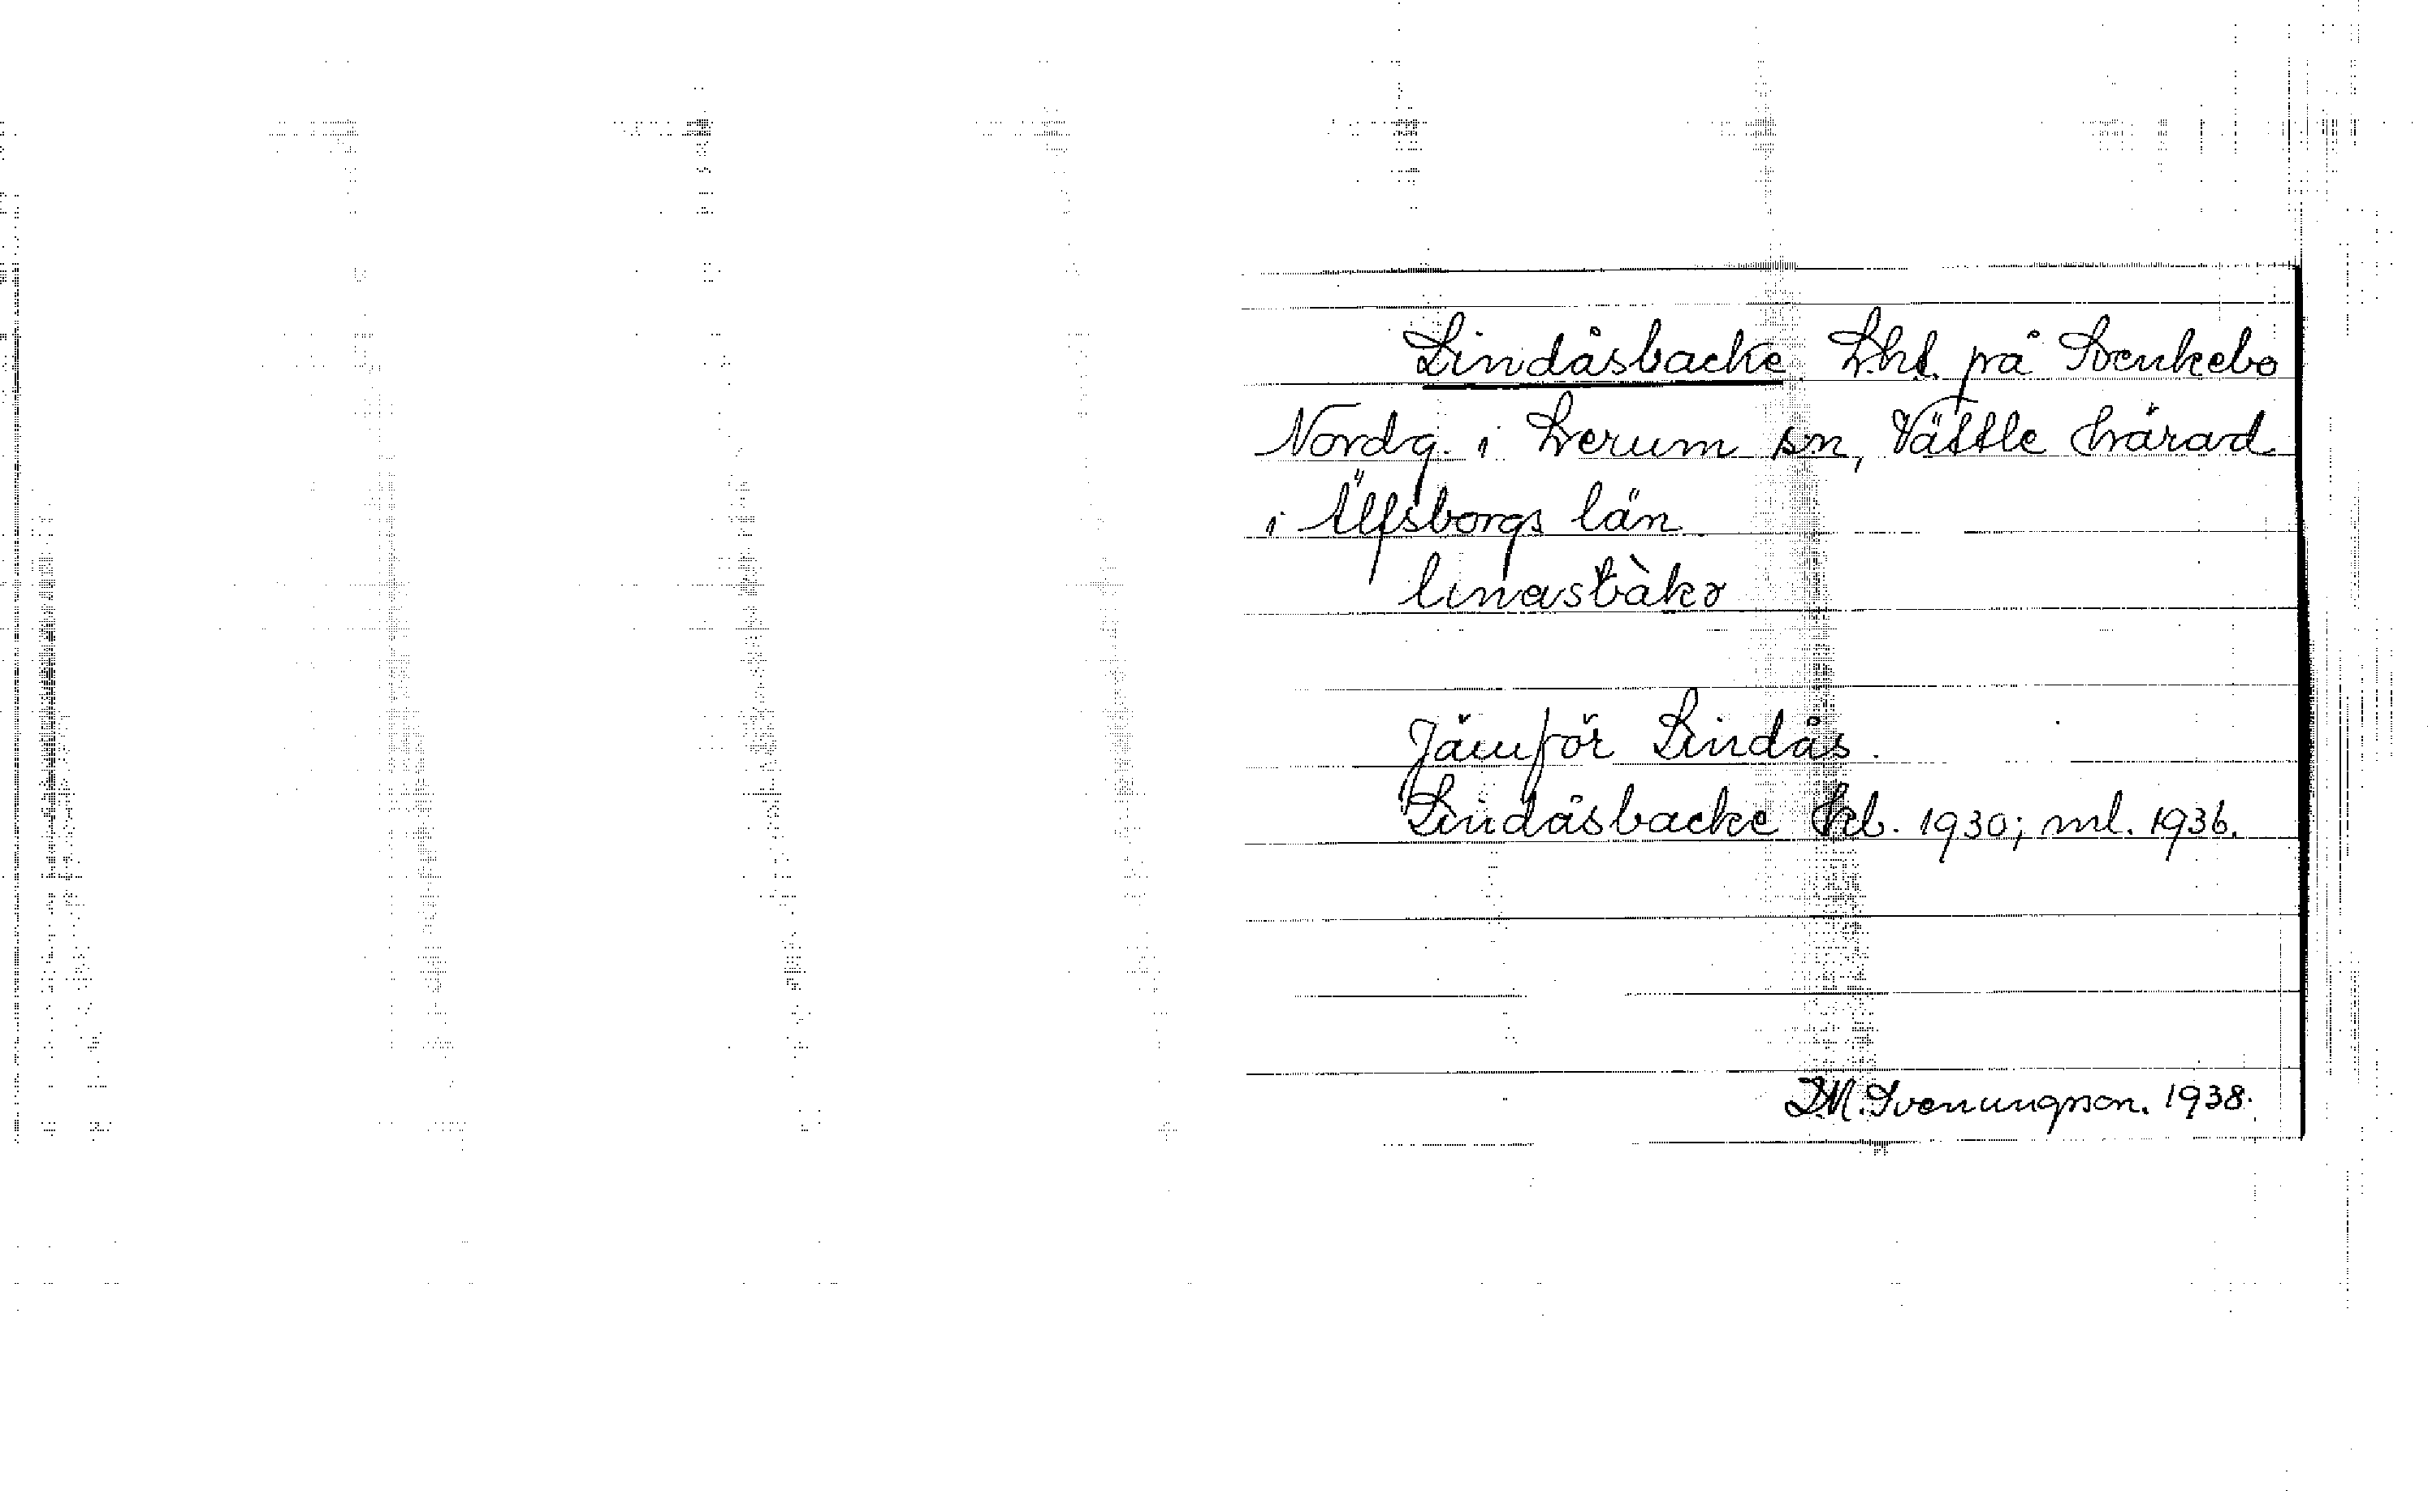 Lindåsbacke Lht. på Svenkebo
Nordg. i Lerum sn, Vättle härad
i Älfsborgs län
Jämför Lindås.
Lindåsbacke kb. 1930; ml. 1936.
D.M. Svenungsson. 1938.